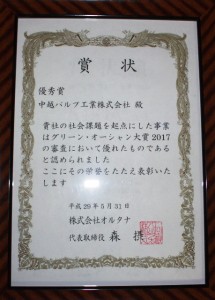 賞状
優秀賞
中越パルプ工業株式会社 殿
貴社の社会課題を起点にした事業
はグリーン・オーシャン大賞2017
の審査において優れたものである
と認められました
ここにその栄誉をたたえ表彰いた
します
平成29年5月31日
株式会社オルタナ
代表取締役 森 摂